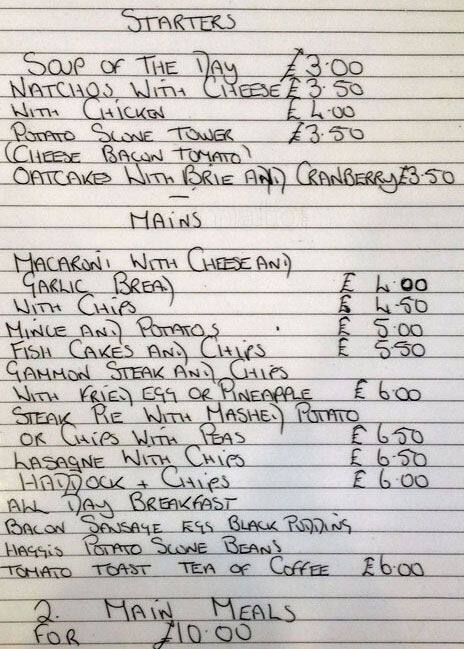 STARTERS
SOUP OF THE DAY £3.00
NATCHOS WITH CHEESE £3.50
WITH CHICKEN £4.00
POTATO SCONE TOWER £3.50
(CHEESE BACON TOMATO)
OATCAKES WITH BRIE AND CRANBERRY £3.50
MAINS
MACARONI WITH CHEESE AND
GARLIC BREAD £4.00
WITH CHIPS £4.50
MINCE AND POTATOS £5.00
FISH CAKES AND CHIPS £5.50
GAMMON STEAK AND CHIPS
WITH FRIED EGG OR PINEAPPLE £6.00
STEAK PIE WITH MASHED POTATO
OR CHIPS WITH PEAS £6.50
LASAGNE WITH CHIPS £6.50
HADDOCK + CHIPS £6.00
ALL DAY BREAKFAST
BACON SAUSAGE EGG BLACK PUDDING
HAGGIS POTATO SCONE BEANS
TOMATO TOAST TEA OF COFFEE £6.00
2. MAIN MEALS
FOR £10.00